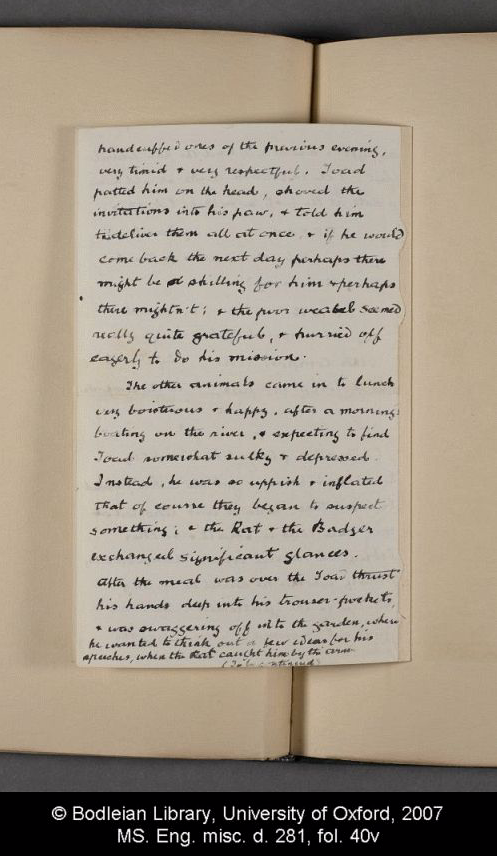 handcuffed ones of the previous evening,
very timid & very respectful. Toad
patted him on the head, shoved the
invitations into his paw, & told him
to deliver them all at once, & if he would
come back the next day perhaps there
might be a shilling for him & perhaps
there mightn't; & the poor weasel seemed
really quite grateful, & hurried off
eagerly to do his mission.
The other animals came in to lunch
very boisterous & happy, after a morning's
boating on the river, & expecting to find
Toad somewhat sulky & depressed.
Instead, he was so uppish & inflated
that of course they began to suspect
something; & the Rat & the Badger
exchanged significant glances.
After the meal was over the Toad thrust
his hands deep into his trouser-pockets,
& was swaggering off into the garden, where
he wanted to think out a few ideas for his
speeches, when the Rat caught him by the arm
(To be continued)
© Bodleian Library, University of Oxford, 2007
MS. Eng. misc. d. 281, fol. 40v